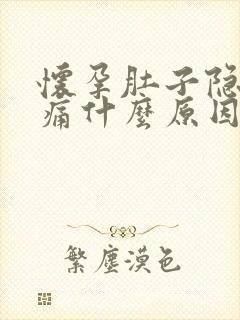 懷孕肚子隐
痛什麼原因
繁塵漠色